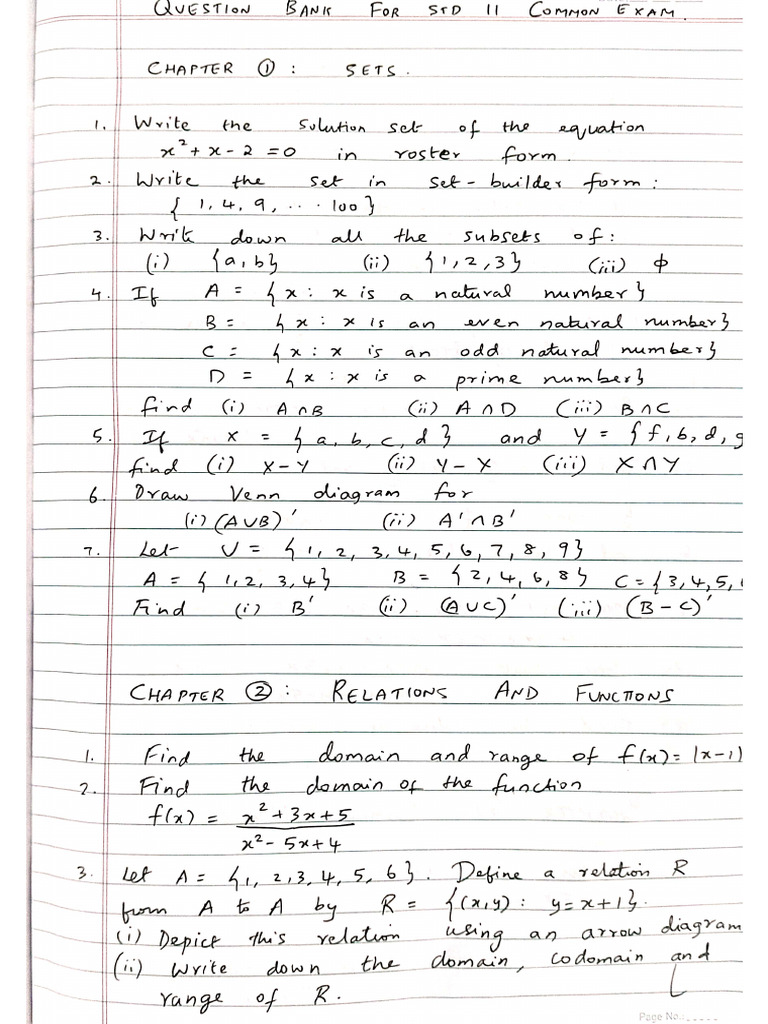 QUESTION BANK FOR STD 11 COMMON EXAM.
CHAPTER ① : SETS.
1. Write the solution set of the equation
x² + x - 2 = 0 in roster form.
2. Write the set in set-builder form :
{ 1, 4, 9, .... 100 }
3. Write down all the subsets of :
(i) {a, b} (ii) {1, 2, 3} (iii) ϕ
4. If A = {x : x is a natural number}
B = {x : x is an even natural number}
C = {x : x is an odd natural number}
D = {x : x is a prime number}
find (i) A ∩ B (ii) A ∩ D (iii) B ∩ C
5. If X = {a, b, c, d} and Y = {f, b, d, g
find (i) X - Y (ii) Y - X (iii) X ∩ Y
6. Draw Venn diagram for
(i) (A ∪ B)' (ii) A' ∩ B'
7. Let U = {1, 2, 3, 4, 5, 6, 7, 8, 9}
A = {1, 2, 3, 4} B = {2, 4, 6, 8} C = {3, 4, 5,
Find (i) B' (ii) (A ∪ C)' (iii) (B - C)'
CHAPTER ② : RELATIONS AND FUNCTIONS
1. Find the domain and range of f(x) = |x-1|
2. Find the domain of the function
f(x) = x² + 3x + 5
x² - 5x + 4
3. Let A = {1, 2, 3, 4, 5, 6}. Define a relation R
from A to A by R = {(x, y) : y = x + 1}.
(i) Depict this relation using an arrow diagram
(ii) Write down the domain, codomain and
range of R.
Page No.: